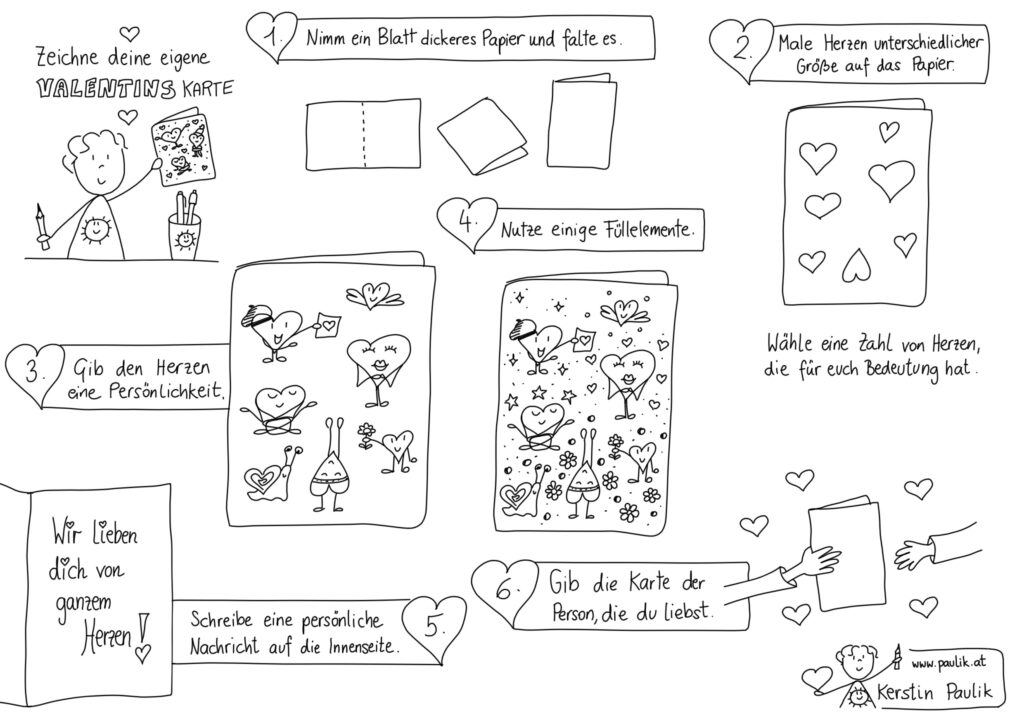 Zeichne deine eigene
VALENTINS KARTE
1.
Nimm ein Blatt dickeres Papier und falte es.
2.
Male Herzen unterschiedlicher
Größe auf das Papier.
Wähle eine Zahl von Herzen,
die für euch Bedeutung hat.
3.
Gib den Herzen
eine Persönlichkeit.
4.
Nutze einige Füllelemente.
Wir lieben
dich von
ganzem
Herzen!
Schreibe eine persönliche
Nachricht auf die Innenseite.
5.
6.
Gib die Karte der
Person, die du liebst.
www.paulik.at
Kerstin Paulik